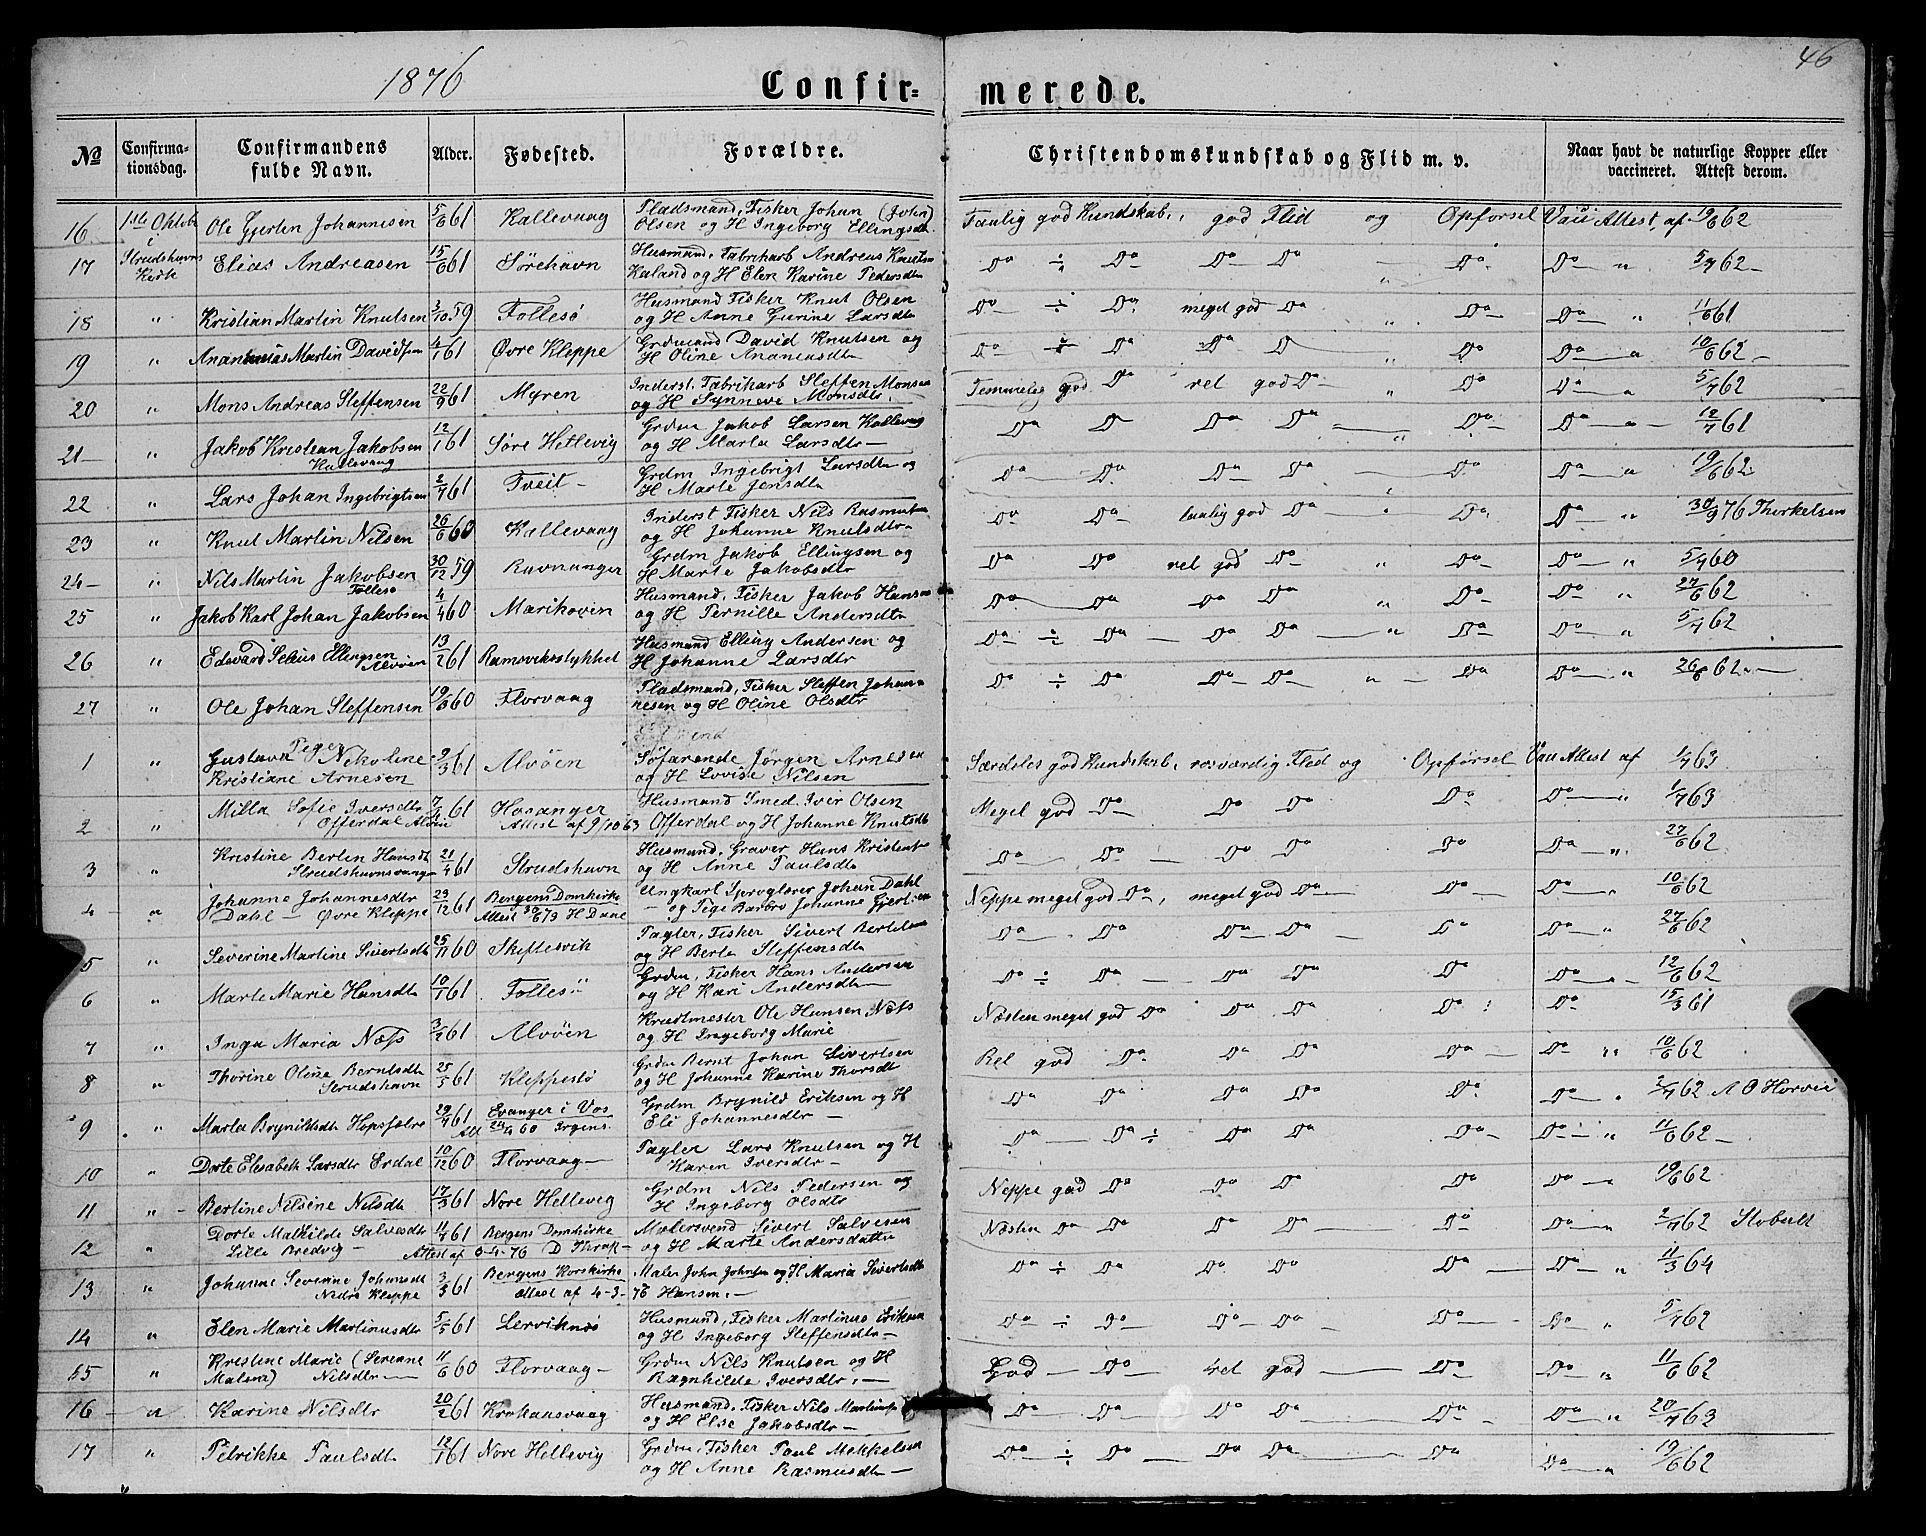 1876 Confir= merede. 46
No Confirma- Confirmandens Alder. Fødested. Forældre. Christendomskundskab og Flid m. v. Naar havt de naturlige Kopper eller
tionsdag. fulde Navn. vaccineret. Attest derom.
16 1ste Oktob Ole Gjertin Johannesen 5/6 61 Kallevaag Pladsmand, Fisker Johan (John) Taalig god Kundskab, god Flid og Opførsel Vac Attest af 19/6 62
Olsen og H Ingeborg Ellingsdtr
17 i Strudshavns Kirk Elias Andreasen 15/6 61 Sørehavn Husmand, Fabrikarb Andreas Knuts Do ÷ Do Do Do Do Do " 5/7 62
Kaland og H Elen Karine Pedersdtr
18 " Kristian Martin Knutsen 3/10 59 Follesø Husmand Fisker Knut Olsen Do ÷ Do meget god Do " Do Do " 11/6 61
og H Anne Gurine Larsdtr
19 " Ananias Martin Davidsen 4/1 61 Øvre Kleppe Grdmand David Knutsen og Do ÷ Do Do Do " Do Do " 10/6 62
H Oline Ananiasdtr
20 " Mons Andreas Steffensen 22/9 61 Myren Inderst, Fabrikarb Steffen Monsen Temmelig god Do vel god Do " Do Do " 5/7 62
og H Synneve Monsdtr
21 " Jakob Kristian Jakobsen 12/1 61 Søre Hetlevig Grdm Jakob Larsen Kallevaag Do Do Do Do " Do Do " 12/7 61
Kallevaag og H Marta Larsdtr
22 " Lars Johan Ingebrigtsen 2/7 61 Tveit Grdm Ingebrigt Larsdtn og Do Do Do Do Do Do " 19/6 62
H Marte Jensdtr
23 " Knut Martin Nilsen 26/6 60 Kallevaag Inderst Fisker Nils Rasmus Do Do taalig god Do " Do Do " 30/9 76 Thorkelsen
og H Johanne Knutsdtr
24 " Nils Martin Jakobsen 30/12 59 Ravnanger Grdm Jakob Ellingsen og Do Do vel god Do " Do Do " 5/7 60
Follesø H Marte Jakobsdtr
25 " Jakob Karl Johan Jakobsen 4/4 60 Marikoven Husmand, Fisker Jakob Hansen Do Do Do Do " Do Do " 27/6 62
og H Pernille Andersdtr
26 " Edevard Selius Ellingsen 13/2 61 Ramsvikestykket Husmand Elling Andersen og Do ÷ Do Do Do " Do Do " 5/7 62
Alvøen H Johanne Larsdtr
27 " Ole Johan Steffensen 19/6 60 Florvaag Pladsmand, Fisker Steffen Johan- Do ÷ Do Do Do " Do Do " 26/6 62
nesen og H Oline Olsdtr
Piger
1 " Gustava Nikoline 9/3 61 Alvøen Søfarende Jørgen Arnesen Særdeles god Kundskab, rosværdig Flid og Opførsel Vac Attest af 1/7 63
Kristiane Arnesen og H Lovise Nilsen
2 " Milla Sofie Iversdtr 7/4 61 Hosanger Husmand Smed Iver Olsen Meget god Do Do Do Do Do " 1/7 63
Offerdal Alvøen Attest af 9/10 63 Offerdal og H Johanne Knutsdtr
3 " Kristine Bertin Hansdtr 21/4 61 Strudshavn Husmand, Graver Hans Kristens Do Do Do Do Do Do " 27/6 62
Strudshavnsvangen og H Anne Paulsdtr
4 " Johanne Johannesdtr 29/12 61 Bergens Domkirke Ungkarl Sproglærer Johan Dahl Neppe meget god Do, meget god Do Do Do " 10/6 62
Dahl Øvre Kleppe Attest 30/6 73 H Daae og Pige Barbro Johanne Gjertsen
5 " Severine Martine Sivertsdtr 25/11 60 Skiftesvik Pagter, Fisker Sivert Bertelsen Do Do Do Do Do Do " 27/6 62
og H Berta Steffensdtr
6 " Marte Marie Hansdtr 10/1 61 Follesø Grdm, Fisker Hans Andersen Do ÷ Do Do Do Do Do " 12/6 62
og H Kari Andersdtr
7 " Inga Maria Næss 3/2 61 Alvøen Krudtmester Ole Hansen Næss Næsten meget god Do Do Do Do Do 15/3 61
og H Ingeborg Marie
8 " Thorine Oline Berntsdtr 25/5 61 Kleppestø Grdm Bernt Johan Sivertsen Vel god Do Do Do Do Do " 10/6 62
Strudshavn og H Johanne Karine Thorsdtr
9 " Marta Brynildsdtr Hopsfolre 29/4 61 Evanger i Vos Grdm Brynild Eriksen og H Do Do Do Do Do Do " 2/7 62 A O Horvei
Att 24/4 60 Irgens Eli Johannesdtr
10 " Dorte Elisabeth Larsdtr Erdal 10/12 60 Florvaag Pagter Lars Knutsen og H Do Do ÷ Do Do Do Do " 11/6 62
Karen Iversdtr
11 " Bertine Nilsine Nilsdtr 17/3 61 Nore Hetleveg Grdm Nils Pedersen og Neppe god Do Do Do Do Do " 19/6 62
H Ingeborg Olsdtr
12 " Dorte Mathilde Salvesdtr 11/4 61 Bergens Domkirke Malersvend Sivert Salvesen Næsten Do Do Do Do Do Do " 2/7 62
Lille Bredvig Attest af 6-4-76 D Thrap og H Marte Andersdatter
13 " Johanne Severine Johansdtr 3/3 61 Bergens Korskirke Maler John Johnsen og H Maria Sivertsdtr Do ÷ Do Do Do Do Do " 11/3 64
Nedre Kleppe Attest af 4-3-76 Hansen
14 " Elen Marie Martinusdtr 5/5 61 Lerviknes Husmand, Fisker Martinus Eriksen Do ÷ Do Do Do Do Do " 5/7 62
og H Ingeborg Steffensdtr
15 " Kristine Marie (Serianne 11/6 60 Florvaag Grdm Nils Knutsen og H God Do vel god Do Do " 11/6 62
Malena) Nilsdtr Ragnhilde Iversdtr
16 " Karine Nilsdtr 20/2 61 Krokansvaag Husmand, Fisker Nils Martinus Do Do Do Do Do Do " 20/7 63
og H Else Jakobsdtr
17 " Petrikke Paulsdtr 12/1 61 Nore Hellevig Grdm, Fisker Paul Mekkelsen Do ÷ Do Do Do Do Do " 19/6 62
og H Anne Rasmusdtr